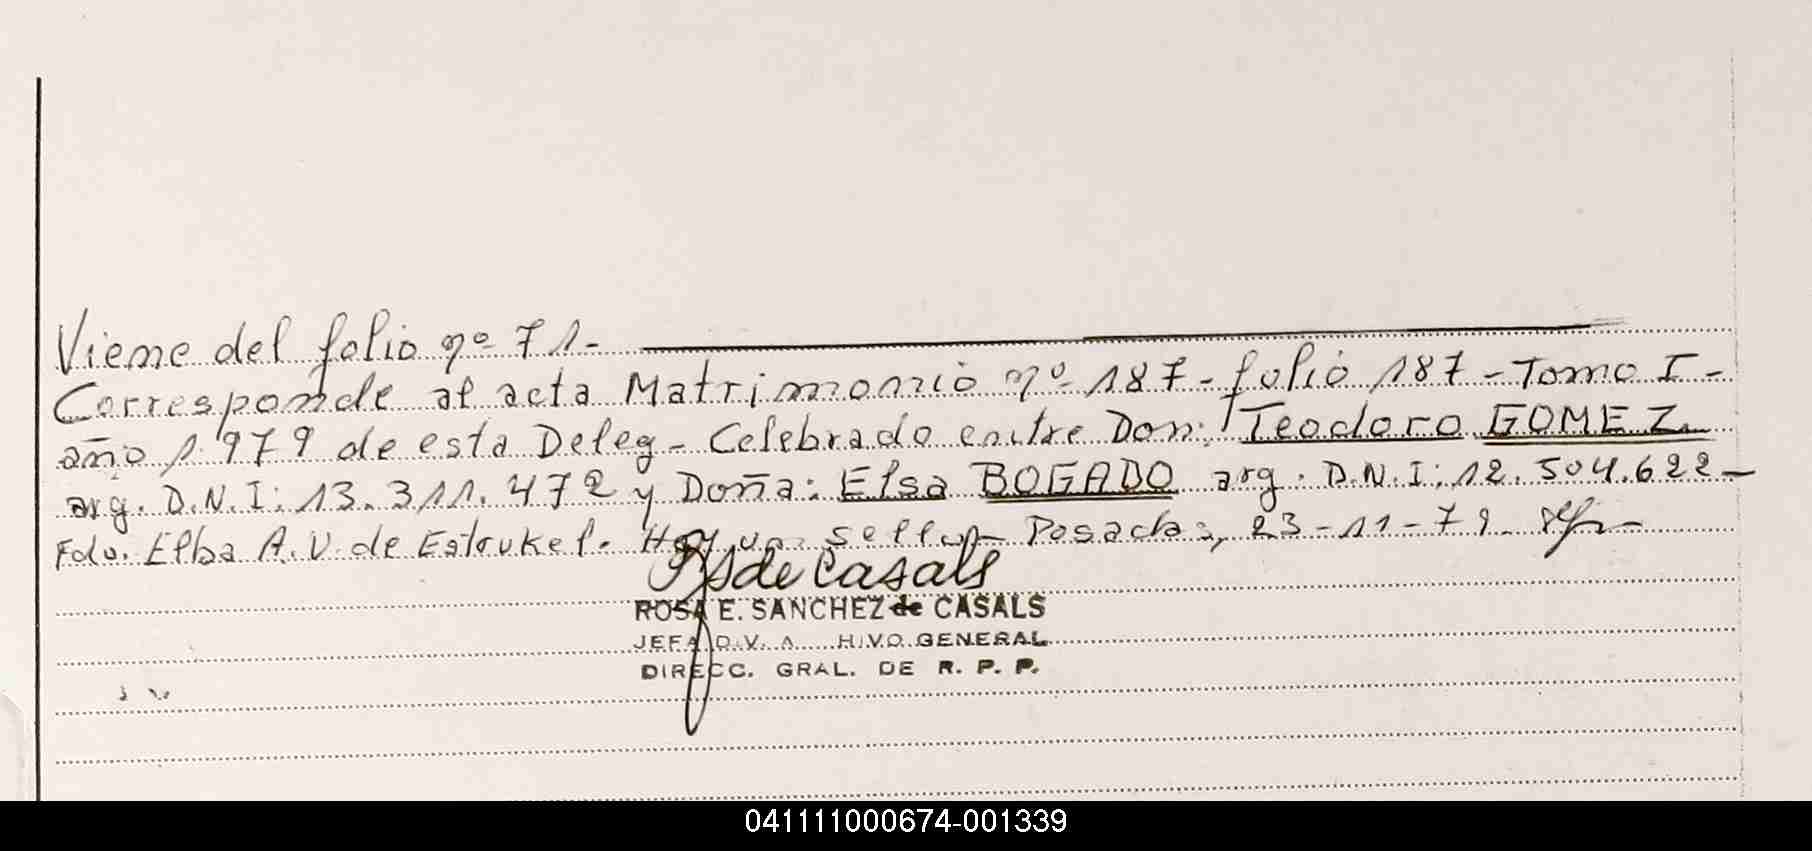 Viene del folio nº 71-
Corresponde al acta Matrimonio nº 187- folio 187 - Tomo I -
año 1979 de esta Deleg- Celebrado entre Don: Teodoro GOMEZ
arg. D.N.I: 13.311.472 y Doña: Elsa BOGADO arg. D.N.I: 12.504.622-
Fdo. Elba A.V. de Estrukel. Hay un sello- Posadas, 23-11-79-
de Casals
ROSA E. SANCHEZ de CASALS
JEFA DIV. A HIVO GENERAL
DIRECC. GRAL. DE R. P. P.
041111000674-001339